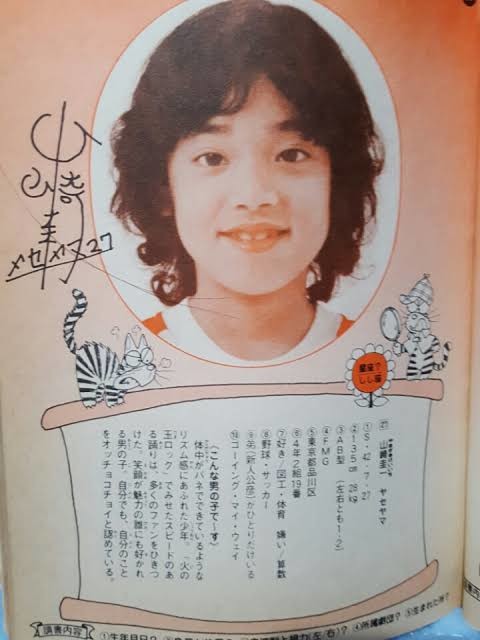 山崎圭
ヤセヤマ27
星座で
しし座
㉗ 山崎圭一 ヤセヤマ
やまざきけいいち
①S・42・7・27
②135㎝ 28㎏
③AB型(左右とも1・2)
④FMG
⑤東京都品川区
⑥4年2組19番
⑦好き/図工・体育 嫌い/算数
⑧野球・サッカー
⑨弟(新人公彦)がひとりだけいる
⑩ゴーイング・マイ・ウェイ
〈こんな男の子で〜す〉
体中がバネでできているような
リズム感にあふれた少年。『火の
玉ロック』でみせたスピードのあ
る踊りは、多くのファンをひきつ
けた。笑顔が魅力の誰にも好かれ
る男の子。自分でも、自分のこと
をオッチョコチョイと認めている。
調書内容
①生年月日?
④所属劇団? ⑤生まれた所?